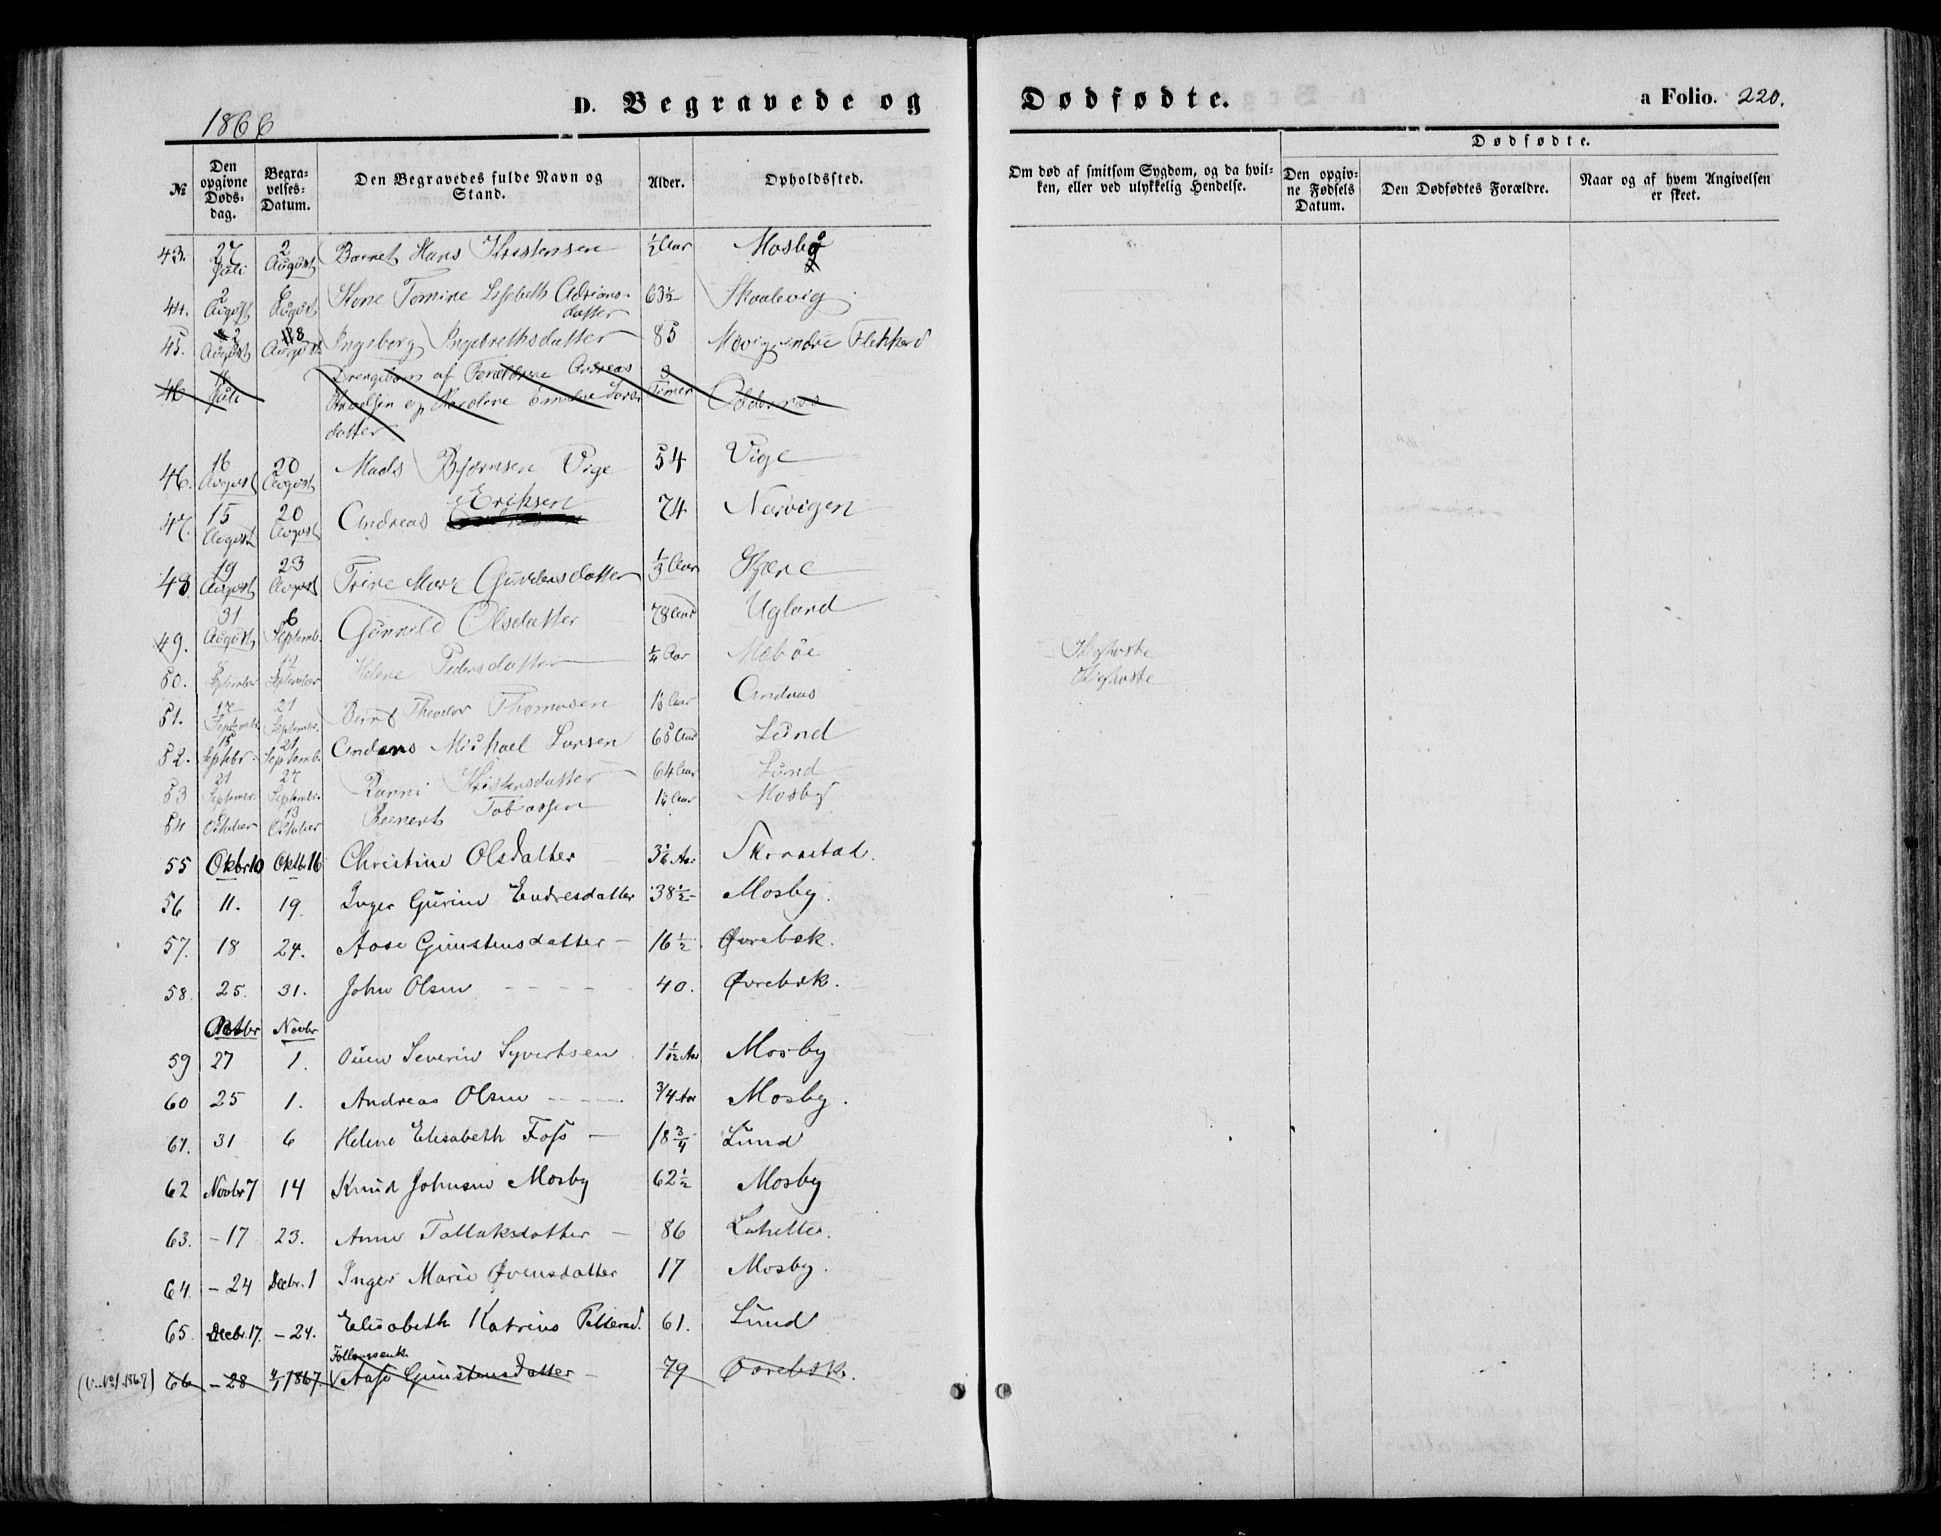 1866
D. Begravede og Dødfødte.
a Folio. 220.
№
Den opgivne Døds-dag.
Begra-velses-Datum.
Den Begravedes fulde Navn og Stand.
Alder.
Opholdssted.
Om død af smitsom Sygdom, og da hvil-ken, eller ved ulykkelig Hendelse.
Dødfødte.
Den opgiv-ne Fødsels Datum.
Den Dødfødtes Forældre.
Naar og af hvem Angivelsen er skeet.
43. 27 Juli 2 August Barnet Hans Kristensen ½ Aar Mosby
44. 2 August 6 August Kone Tomine Lisebeth Adrians-datter 63½ Skaalevig
45. August 8 August Ingeborg Ingebrethsdatter 85 Møvig indre Flekkerø
46 Juli Drengebarn af Forældrene Andreas
og Karoline datter Timer Oddernes
46. 16 August 20 August Mads Bjørnsen Vige 54 Vige
47. 15 August 20 August Andreas Eriksen 74 Narvigen
48. 19 August 23 August Trine Mari Gundersdatter ⅓ Aar Kjære
49. 31 August 6 Septemb. Gunnild Olsdatter 78 Aar Ugland
50. September September Helene Pedersdatter ¼ Aar Mebøe Kighoste
51. Septembr. 21 September Bernt Theodor Thomasen Aar Andaas Kighoste
52. 15 Septebr. 21 Septemb. Anders Michael Larsen 65 Aar Lund
53 21 September. 27 September. Ranni Kristensdatter 64 Aar Lund
54 October 13 October Reinert Tobiassen Aar Mosby
55 Oktbr 10 Oktbr 16 Christine Olsdatter 3⅙ Aar
56 11. 19. Inger Gurine Endresdatter 38½ Mosby.
57. 18 24. Aase Gunstensdatter 16½ Øvrebøk.
58. 25. 31. John Olsen 40. Øvrebøk.
Octbr Novbr
59 27 1. Ouen Severin Syvertsen 1 1/12 Aar Mosby
60 25 1. Andreas Olsen ¾ Aar Mosby.
61. 31 6 Helene Elisabeth Foss 18¾ Lund
62 Novbr 7 14 Knud Johnsen Mosby 62½ Mosby
63. - 17 23. Anne Tallaksdatter 86 Lahelle.
64. - 24 Decbr. 1 Inger Marie Øvensdatter 17 Mosby.
65. Decbr. 17. - 24. Elisabeth Katrine Pettersd. 61. Lund
66 - 28 1867. Aase Gunstensdatter 79 Øvrebøk.